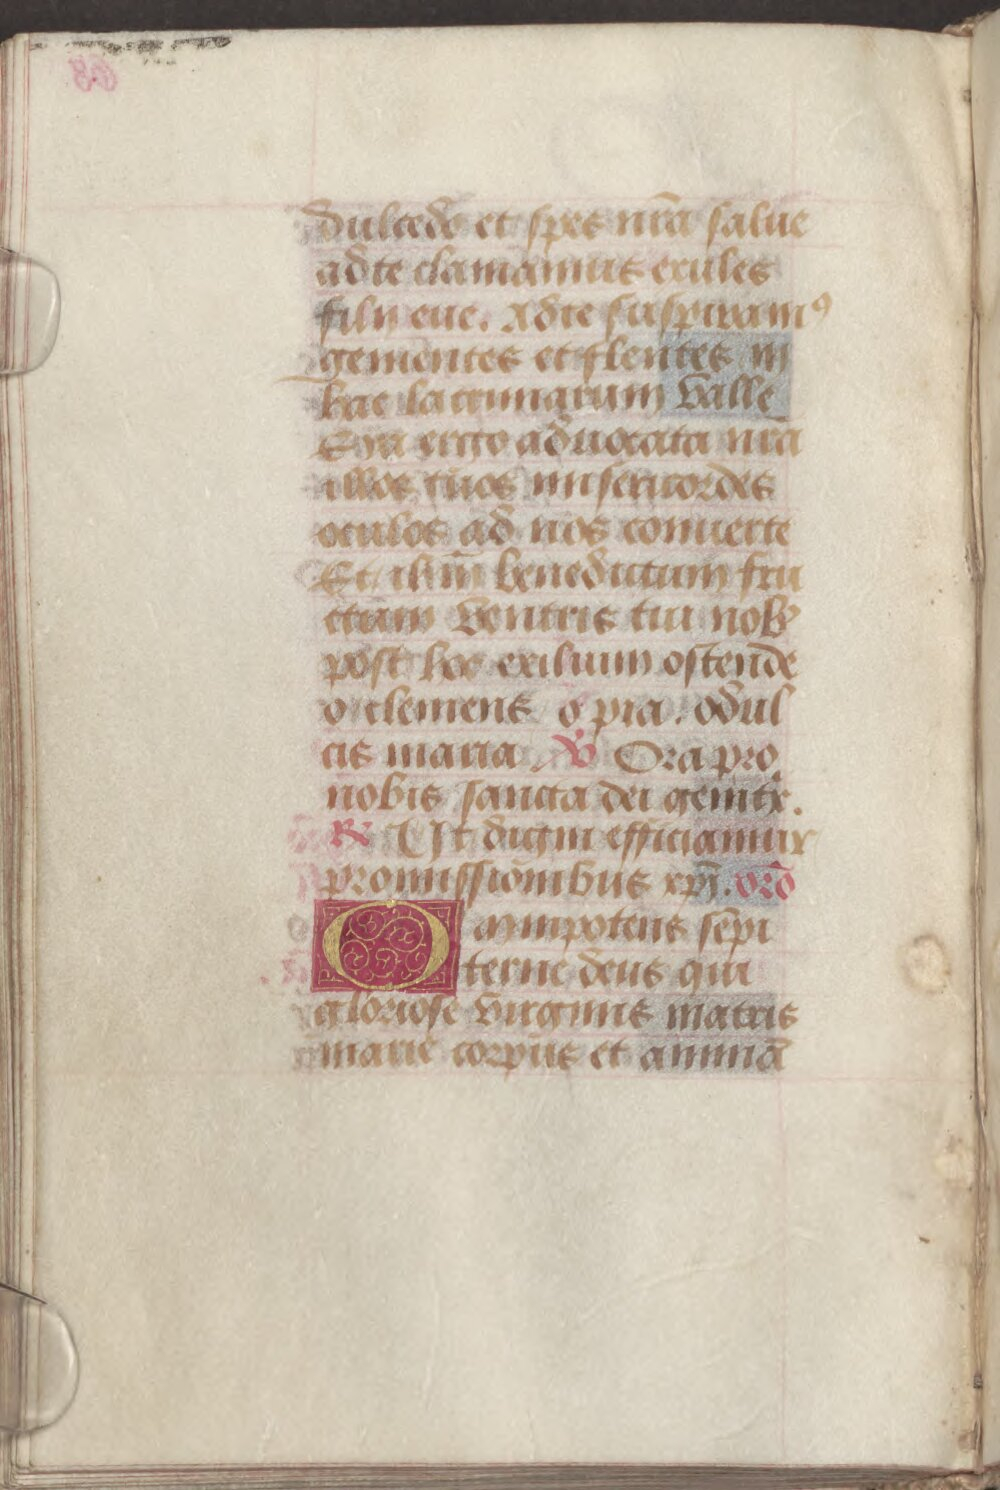 dulcedo et spes nr̄a salue
ad te clamamus exules
filij eue. Ad te suspiramꝰ
gementes et flentes in
hac lacrimarum valle
Eya ergo aduocata nr̄a
illos tuos misericordes
oculos ad nos conuerte
Et ih̄m benedictum fru
ctum ventris tui nob̄
post hoc exilium ostende
o clemens o pia. o dul
cis maria ℣ Ora pro
nobis sancta dei genitx̄.
℟ Ut digni efficiamur
promissionibus xp̄i. orō
Omnipotens sēpi
terne deus qui
gloriose virginis matris
marie corpus et animā